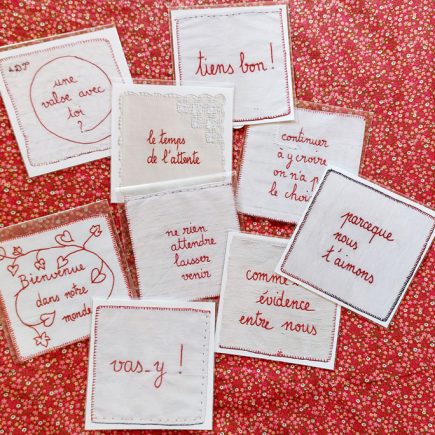 tiens bon !
A.D.P
une
valse avec
toi
?
le temps
de l'attente
continuer
à y croire
on n'a
le
ne rien
attendre
laisser
venir
parceque
nous
t'aimons
Bienvenue
dans notre
monde
comme
évidence
entre nous
vas-y !